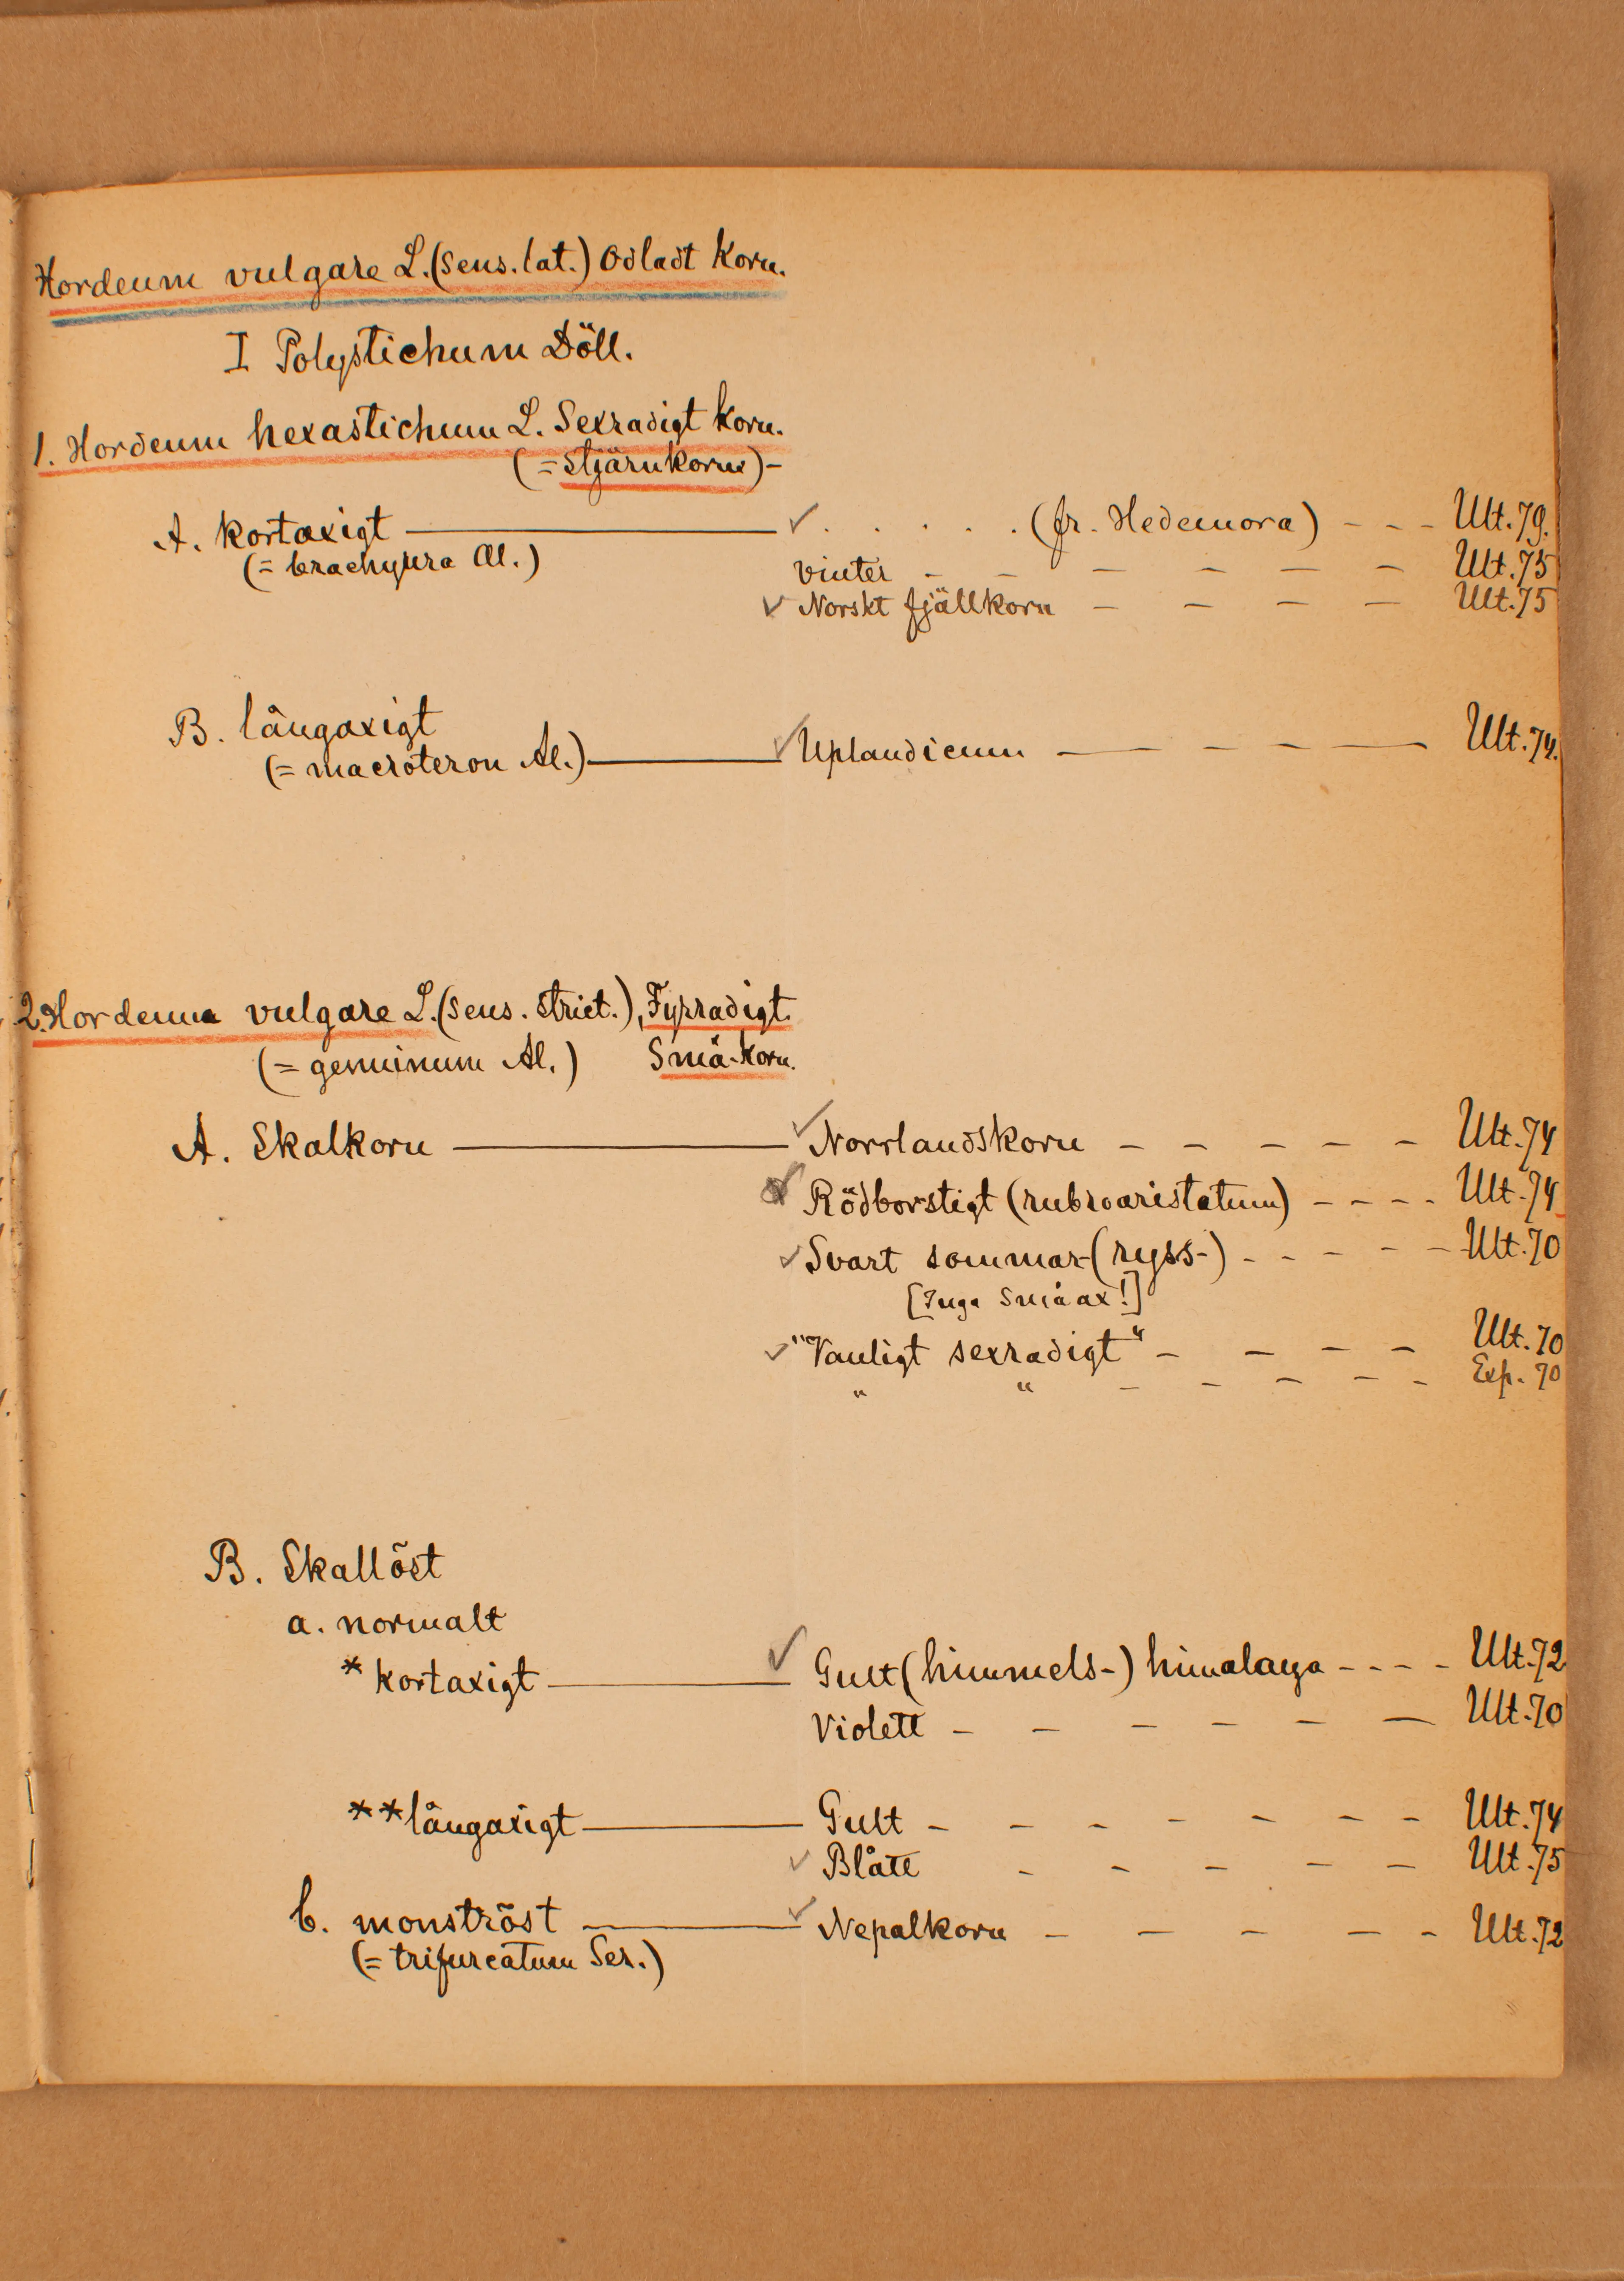 Hordeum vulgare L. (sens. lat.) Odladt Korn.
I Polystichum Döll.
1. Hordeum hexastichum L. Sexradigt korn.
(= Stjärnkorn) -
A. kortaxigt — ✓ . . . . . (fr. Hedemora) - - - Ult. 79.
(= brachyura Al.)
vinter - - - - - - Ult. 75
✓ Norskt fjällkorn - - - - Ult. 75
B. långaxigt
(= macroteron Al.) — ✓ Uplandicum - - - - Ult. 74.
2. Hordeum vulgare L. (sens. strict.), Fyrradigt.
(= genuinum Al.) Små-korn.
A. Skalkorn — ✓ Norrlandskorn - - - - - Ult. 74
✓ Rödborstigt (rubroaristatum) - - - - Ult. 74
✓ Svart sommar- (ryss-) - - - - - Ult. 70
[Inga småax!]
✓ "Vanligt sexradigt" - - - - Ult. 70
" " - - - - - Exp. 70
B. Skallöst
a. normalt
* kortaxigt — ✓ Gult (himmels-) himalaya - - - - Ult. 72
Violett - - - - - - Ult. 70
** långaxigt — Gult - - - - - - - Ult. 74
✓ Blått - - - - - Ult. 75
b. monströst — ✓ Nepalkorn - - - - - Ult. 72
(= trifurcatum Ser.)